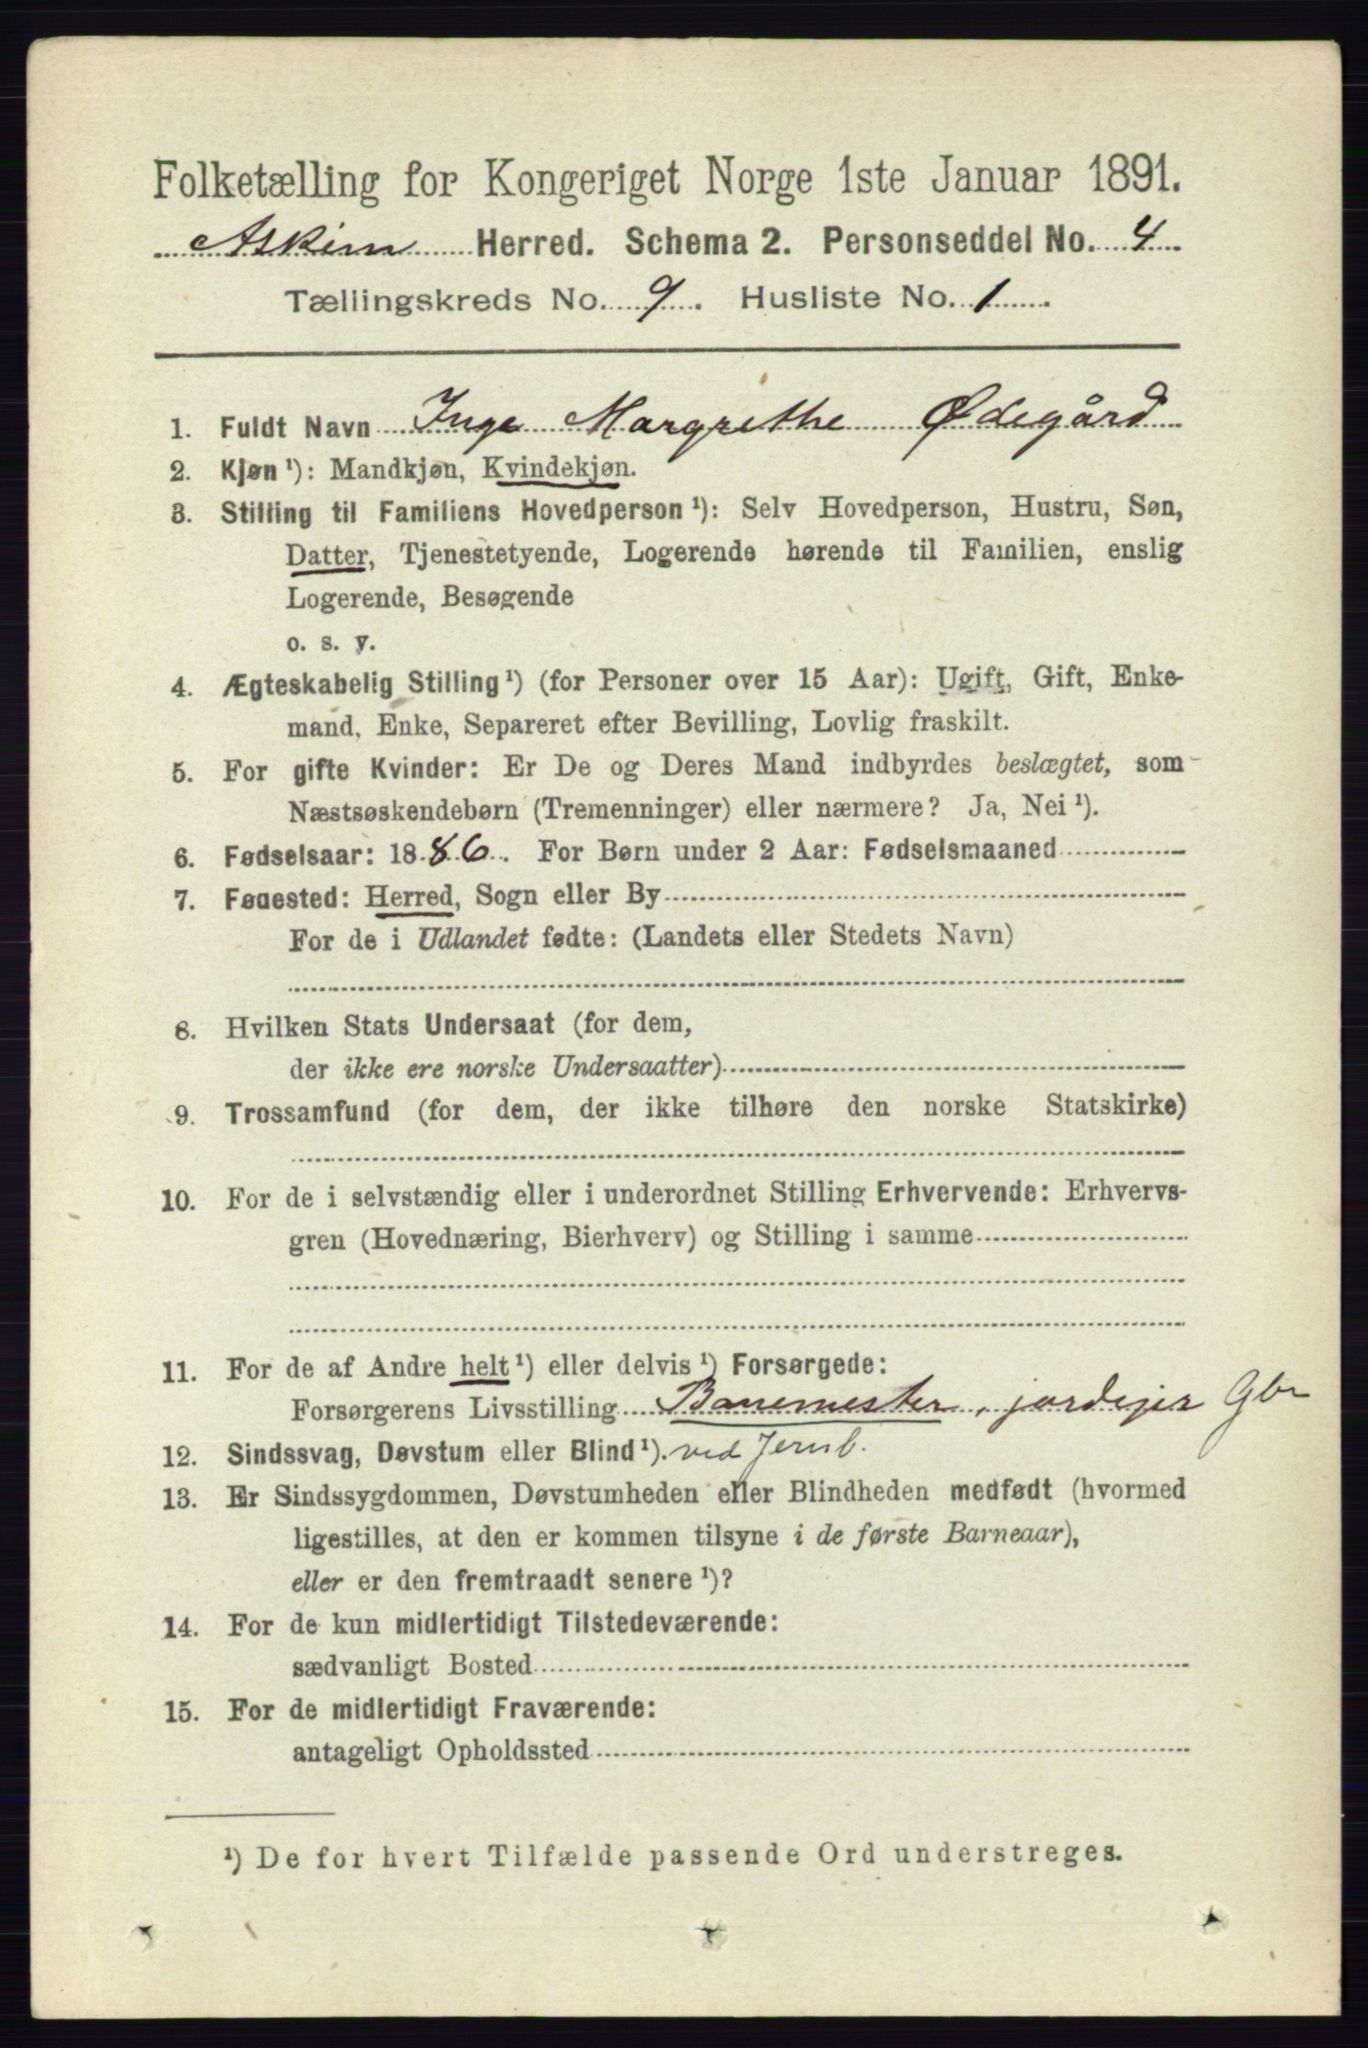 Folketælling for Kongeriget Norge 1ste Januar 1891.
Askim Herred. Schema 2. Personseddel No. 4
Tællingskreds No. 9. Husliste No. 1.
1. Fuldt Navn Inga Margrethe Ødegård
2. Kjøn¹): Mandkjøn, Kvindekjøn.
3. Stilling til Familiens Hovedperson¹): Selv Hovedperson, Hustru, Søn,
Datter, Tjenestetyende, Logerende hørende til Familien, enslig
Logerende, Besøgende
o. s. v.
4. Ægteskabelig Stilling¹) (for Personer over 15 Aar): Ugift, Gift, Enke-
mand, Enke, Separeret efter Bevilling, Lovlig fraskilt.
5. For gifte Kvinder: Er De og Deres Mand indbyrdes beslægtet, som
Næstsøskendebørn (Tremenninger) eller nærmere? Ja, Nei¹).
6. Fødselsaar: 1886. For Børn under 2 Aar: Fødselsmaaned
7. Fødested: Herred, Sogn eller By
For de i Udlandet fødte: (Landets eller Stedets Navn)
8. Hvilken Stats Undersaat (for dem,
der ikke ere norske Undersaatter)
9. Trossamfund (for dem, der ikke tilhøre den norske Statskirke)
10. For de i selvstændig eller i underordnet Stilling Erhvervende: Erhvervs-
gren (Hovednæring, Bierhverv) og Stilling i samme
11. For de af Andre helt¹) eller delvis¹) Forsørgede:
Forsørgerens Livsstilling Banemester, jordejer Gbr
12. Sindssvag, Døvstum eller Blind¹). ved Jernb.
13. Er Sindssygdommen, Døvstumheden eller Blindheden medfødt (hvormed
ligestilles, at den er kommen tilsyne i de første Barneaar),
eller er den fremtraadt senere¹)?
14. For de kun midlertidigt Tilstedeværende:
sædvanligt Bosted
15. For de midlertidigt Fraværende:
antageligt Opholdssted
¹) De for hvert Tilfælde passende Ord understreges.